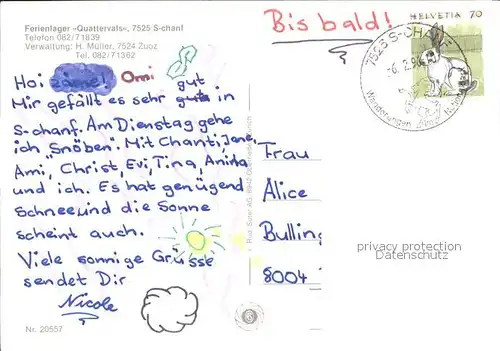 Ferienlager «Quattervals», 7525 S-chanf
Telefon 082/71839
Verwaltung: H. Müller, 7524 Zuoz
Tel. 082/71362
Bis bald!
HELVETIA 70
7525 S-CHANF
Hoi Omi
gut
Mir gefällt es sehr gut in
S-chanf. Am Dienstag gehe
ich "Snöben". Mit Chanti, Jene,
Ami, Christ, Evi, Tina, Anita
und ich. Es hat genügend
Schnee und die Sonne
scheint auch.
Viele sonnige Grüsse
sendet Dir
Nicole
Frau
Alice
Bulling
8004
privacy protection
Datenschutz
Nr. 20557